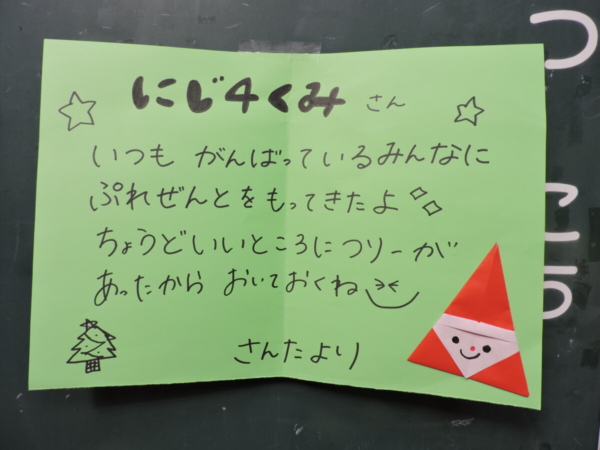 にじ4くみ さん
いつも がんばっているみんなに
ぷれぜんとをもってきたよ
ちょうどいいところにツリーが
あったから おいておくね
さんたより
つ